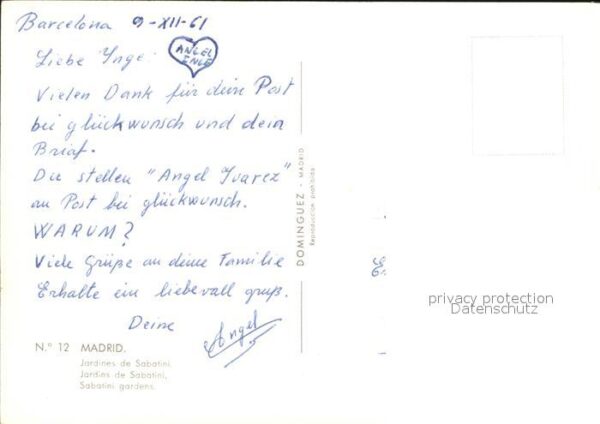 Barcelona 9-XII-61
Liebe Inge:
ANGEL
INGE
Vielen Dank für deine Post
bei glückwunsch und dein
Brief.
Du stellen "Angel Juarez"
an Post bei glückwunsch.
WARUM?
Viele Grüße an deine Familie
Erhalte ein liebevall gruß.
Deine
Angel
N.º 12 MADRID.
Jardines de Sabatini.
Jardins de Sabatini.
Sabatini gardens.
DOMINGUEZ - MADRID
Reproduccion prohibida
privacy protection
Datenschutz